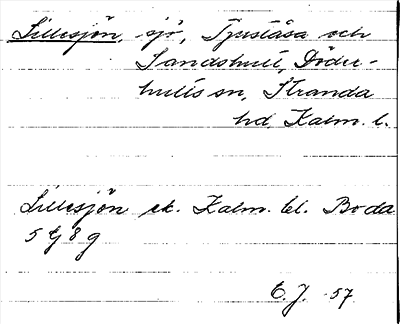 Lillesjön, sjö, Tjuståsa och
Sandshult, Döder-
hults sn, Stranda
hd, Kalm. l.
Lillesjön ek. Kalm. bl. Boda
5 G 8 g
E.J. -57